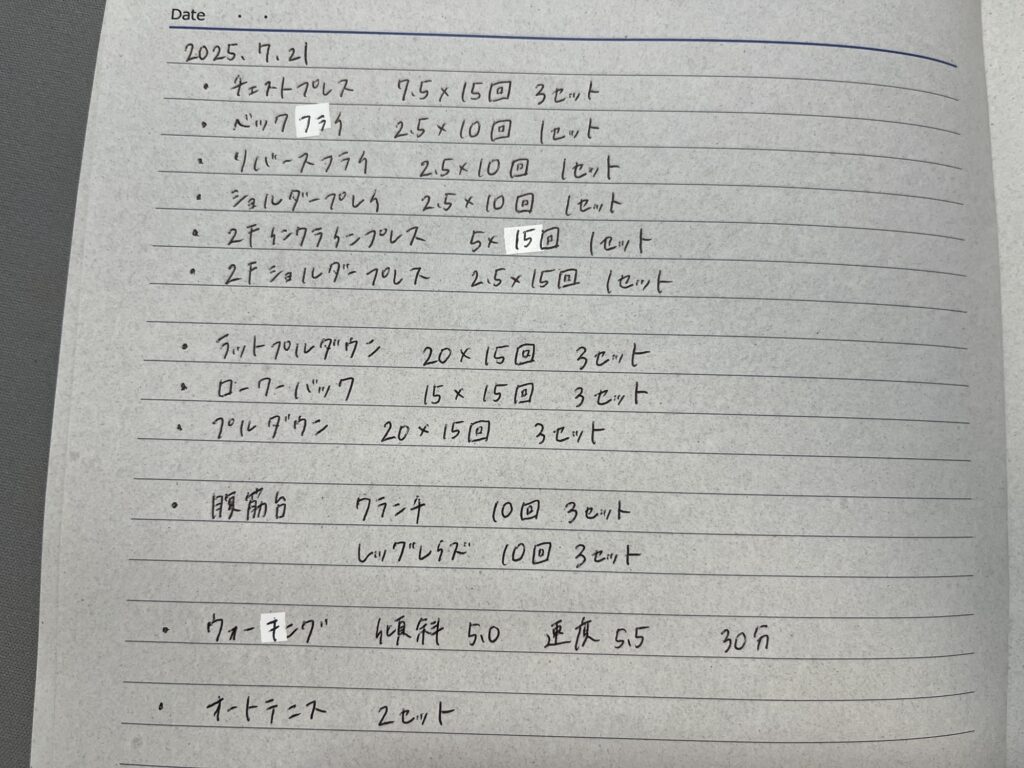 Date ・ ・
2025.7.21
・ チェストプレス 7.5×15回 3セット
・ ペックフライ 2.5×10回 1セット
・ リバースフライ 2.5×10回 1セット
・ ショルダープレイ 2.5×10回 1セット
・ 2Fインクラインプレス 5×15回 1セット
・ 2Fショルダープレス 2.5×15回 1セット
・ ラットプルダウン 20×15回 3セット
・ ローワーバック 15×15回 3セット
・ プルダウン 20×15回 3セット
・ 腹筋台 クランチ 10回 3セット
レッグレイズ 10回 3セット
・ ウォーキング 傾斜 5.0 速度 5.5 30分
・ オートテニス 2セット